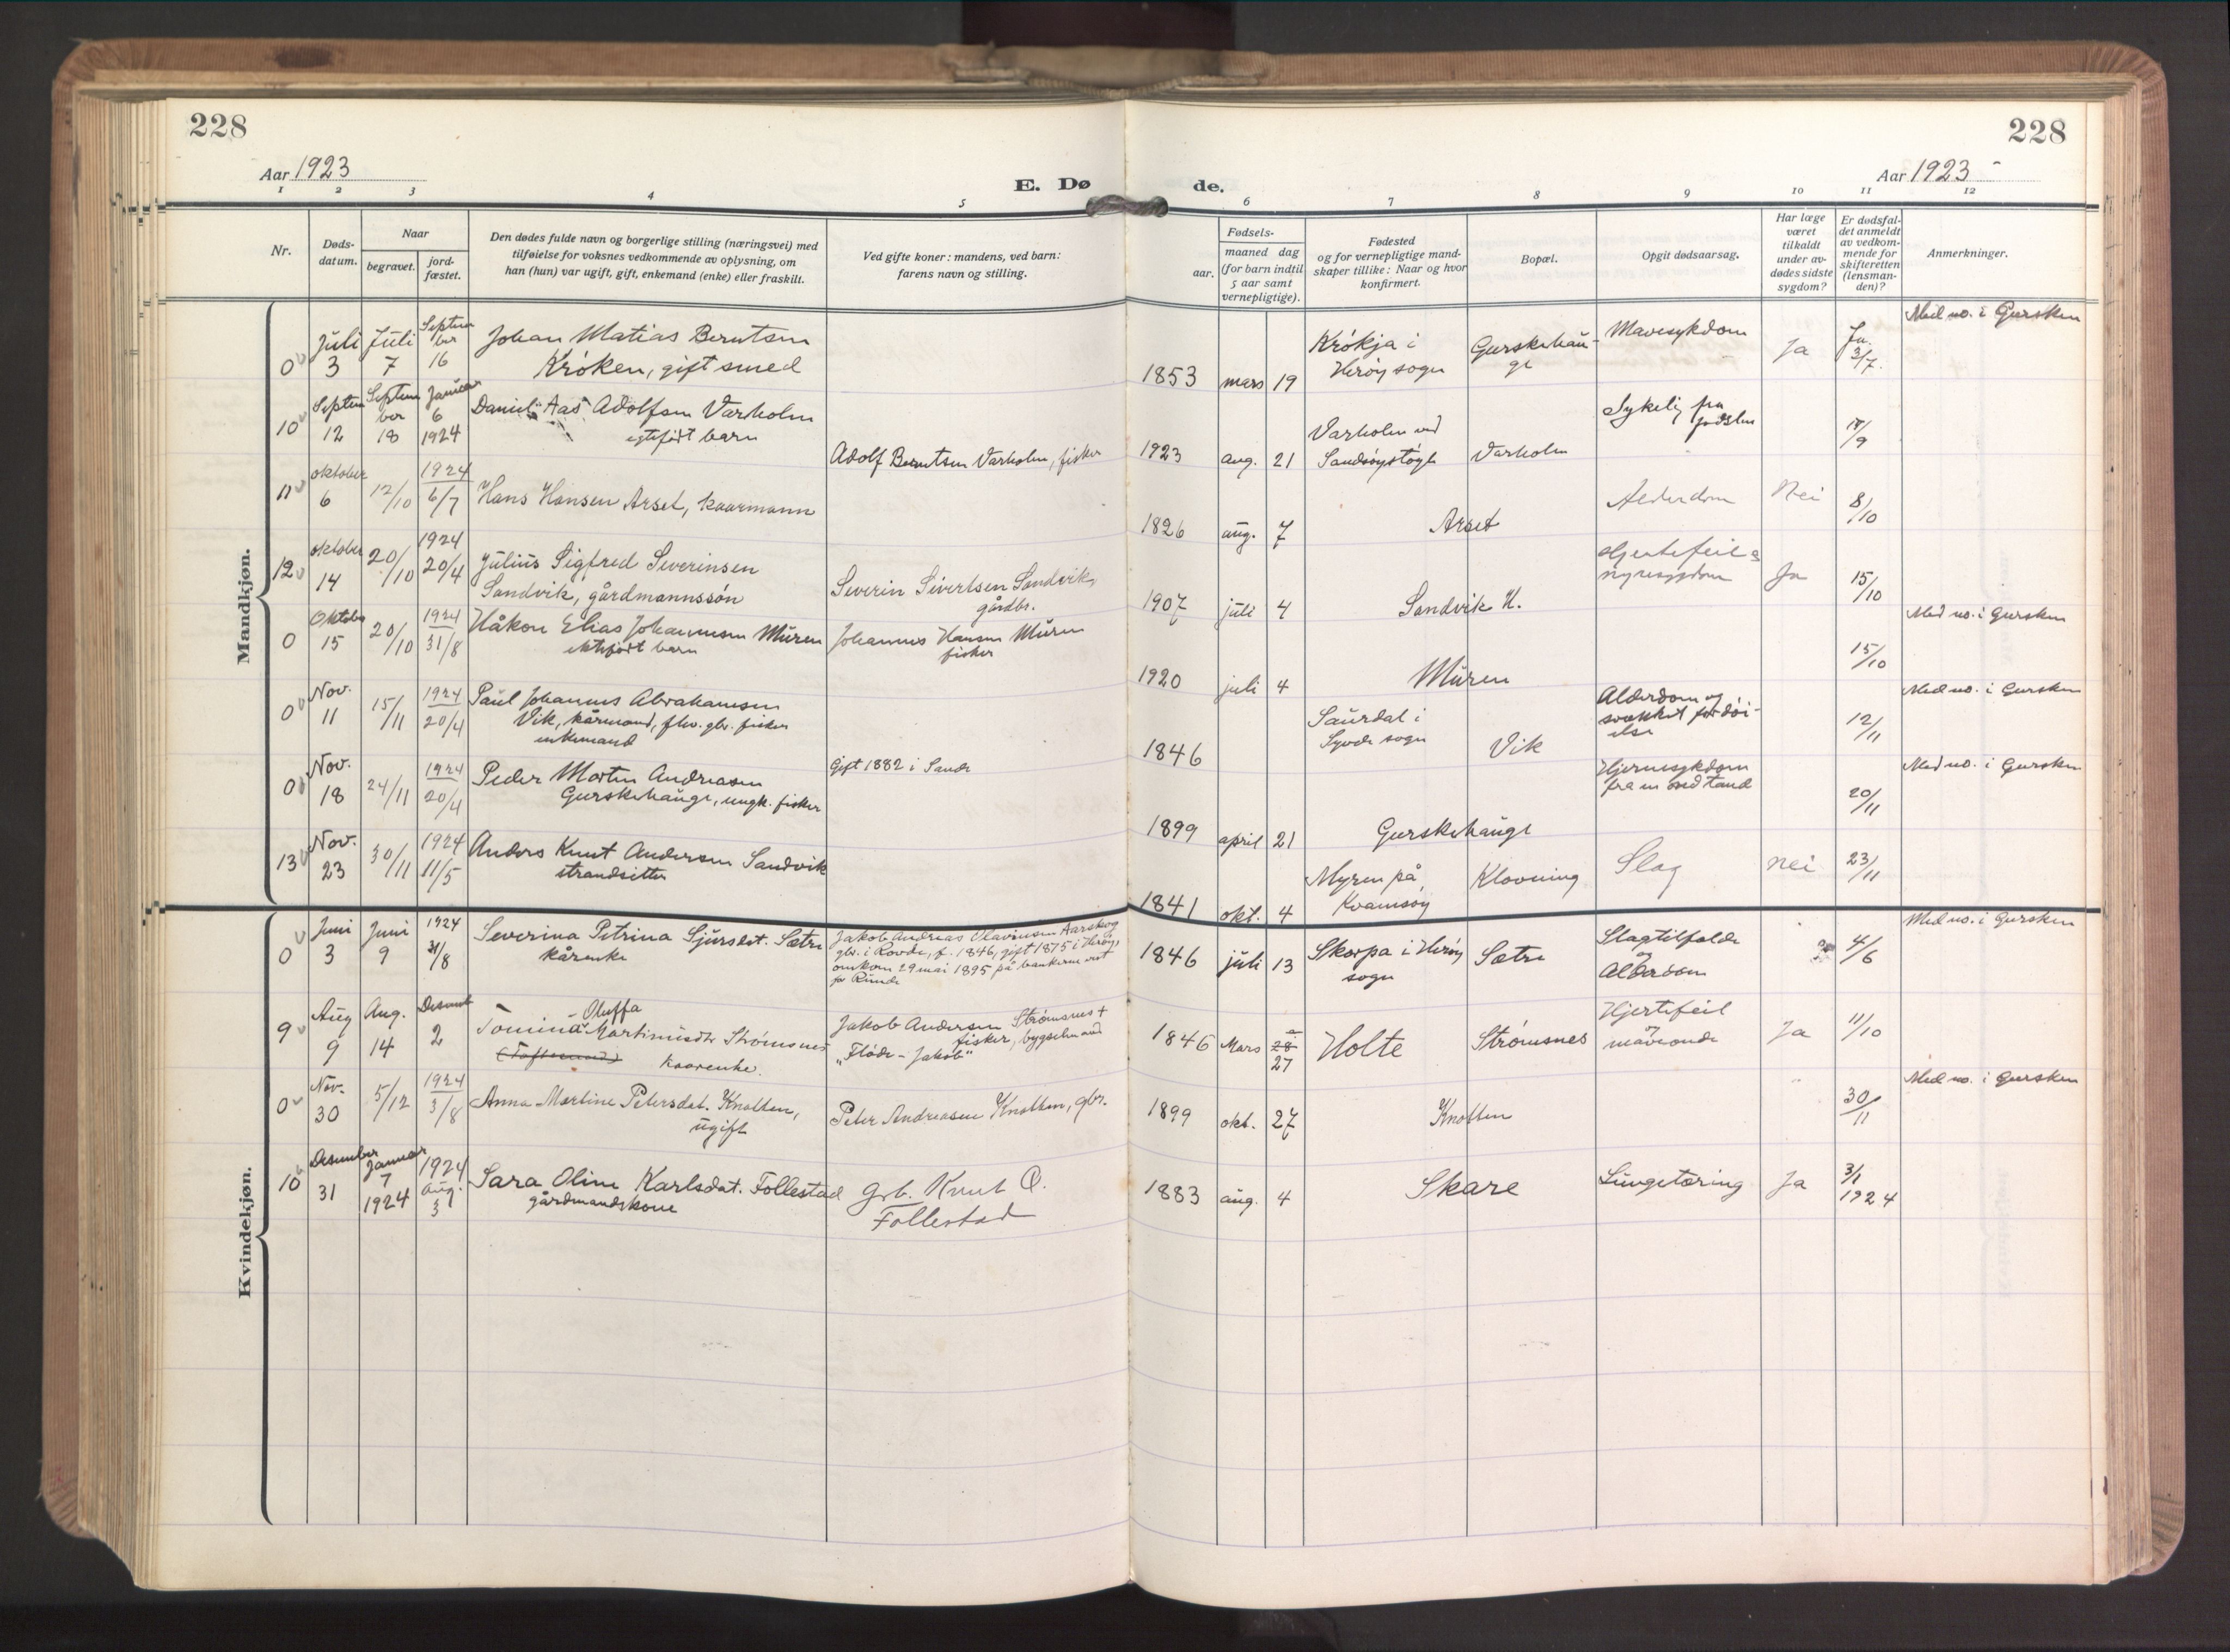 228
228
Aar 1923
Aar 1923
E. Dø
de.
1 2 3 4 5 6 7 8 9 10 11 12
Nr.
Døds-
datum.
Naar
begravet.
jord-
fæstet.
Den dødes fulde navn og borgerlige stilling (næringsvei) med
tilføielse for voksnes vedkommende av oplysning, om
han (hun) var ugift, gift, enkemand (enke) eller fraskilt.
Ved gifte koner: mandens, ved barn:
farens navn og stilling.
Fødsels-
aar.
maaned dag
(for barn indtil
5 aar samt
vernepligtige).
Fødested
og for vernepligtige mand-
skaper tillike: Naar og hvor
konfirmert.
Bopæl.
Opgit dødsaarsag.
Har læge
været
tilkaldt
under av-
dødes sidste
sygdom?
Er dødsfal-
det anmeldt
av vedkom-
mende for
skifteretten
(lensman-
den)?
Anmerkninger.
Mandkjøn.
0 Juli 3 Juli 7 September 16
Johan Matias Berntsen
Króken, gift smed
1853 mars 19
Krókja i
Herøy sogn
Gurskehau-
ge
Mavesykdom
Ja
Ja.
3/7.
Med no. i Gursken
10 Septem 12 September 18 Januar 6 1924
Daniel Aas Adolfsen Varholm
egtefødt barn
Adolf Berntsen Varholm, fisker
1923 aug. 21
Varholm ved
Sandsøystøyl
Varholm
Sykelig fra
fødslen
/9
11 oktober 6 12/10 1924 6/7
Hans Hansen Arset, kaarmann
1826 aug. 7
Arset
Alderdom
Nei
8/10
12 oktober 14 20/10 1924 20/4
Julius Sigfred Severinsen
Sandvik, gårdmannssón
Severin Sivertsen Sandvik,
gårdbr.
1907 juli 4
Sandvik U.
Hjertefeil &
nyresygdom
Ja
15/10
0 Oktober 15 20/10 1924 31/8
Håkon Elias Johannessen Muren
ektefødt barn
Johannes Hansen Muren
fisker
1920 juli 4
Muren
15/10
Med no. i Gursken
0 Nov. 11 15/11 1924 20/4
Paul Johannes Abrahamsen
Vik, kårmand, fhv. gbr. fisker
enkemand
1846
Saurdal i
Syvde sogn
Vik
Alderdom og
svækket fordói-
else
12/11
Med no. i Gursken
0 Nov. 18 24/11 1924 20/4
Peder Martin Andreasen
Gurskehauge, ungk. fisker
Gift 1882 i Sande
1899 april 21
Gurskehauge
Hjernesykdom
fra en ond tand
20/11
Med no. i Gursken
13 Nov. 23 30/11 1924 11/5
Anders Knut Andersen Sandvik
strandsitter
1841 okt. 4
Myren på
Kvamsøy
Klovning
Slag
nei
23/11
Kvindekjøn.
0 Juni 3 Juni 9 1924 31/8
Severina Petrina Sjursdt. Sætre
kårenke
Jakob Andreas Olavinsen Aarskog
gbr. i Rovde, f. 1846, gift 1875 i Herøy,
omkom 29 mai 1895 på bankerne vest
for Runde
1846 juli 13
Skorpa i Herøy
sogn
Sætre
Slagtilfælde
og
Alderdom
4/6
Med no. i Gursken
9 Aug 9 Aug. 14 Desemb 2
- Oluffa
Tomina Martinusdtr Strømsnes
kaarenke.
Jakob Andersen Strømsnes +
fisker, bygselmand
„Flóde-Jakob"
1846 Mars 28 27
Holte
Strømsnes
Hjertefeil
og
maveonde
Ja
11/10
0 Nov. 30 5/12 1924 3/8
Anna-Martine Petersdat. Knotten,
ugift
Peter Andreasen Knotten, gbr.
1899 okt. 27
Knotten
30/11
Med no. i Gursken
10 Desember 31 Januar 7 1924 1924 Aug. 31
Sara Oline Karlsdat. Follestad
gårdmandskone
Grb. Knut O.
Follestad
1883 aug. 4
Skare
Lungetæring
Ja
3/1
1924